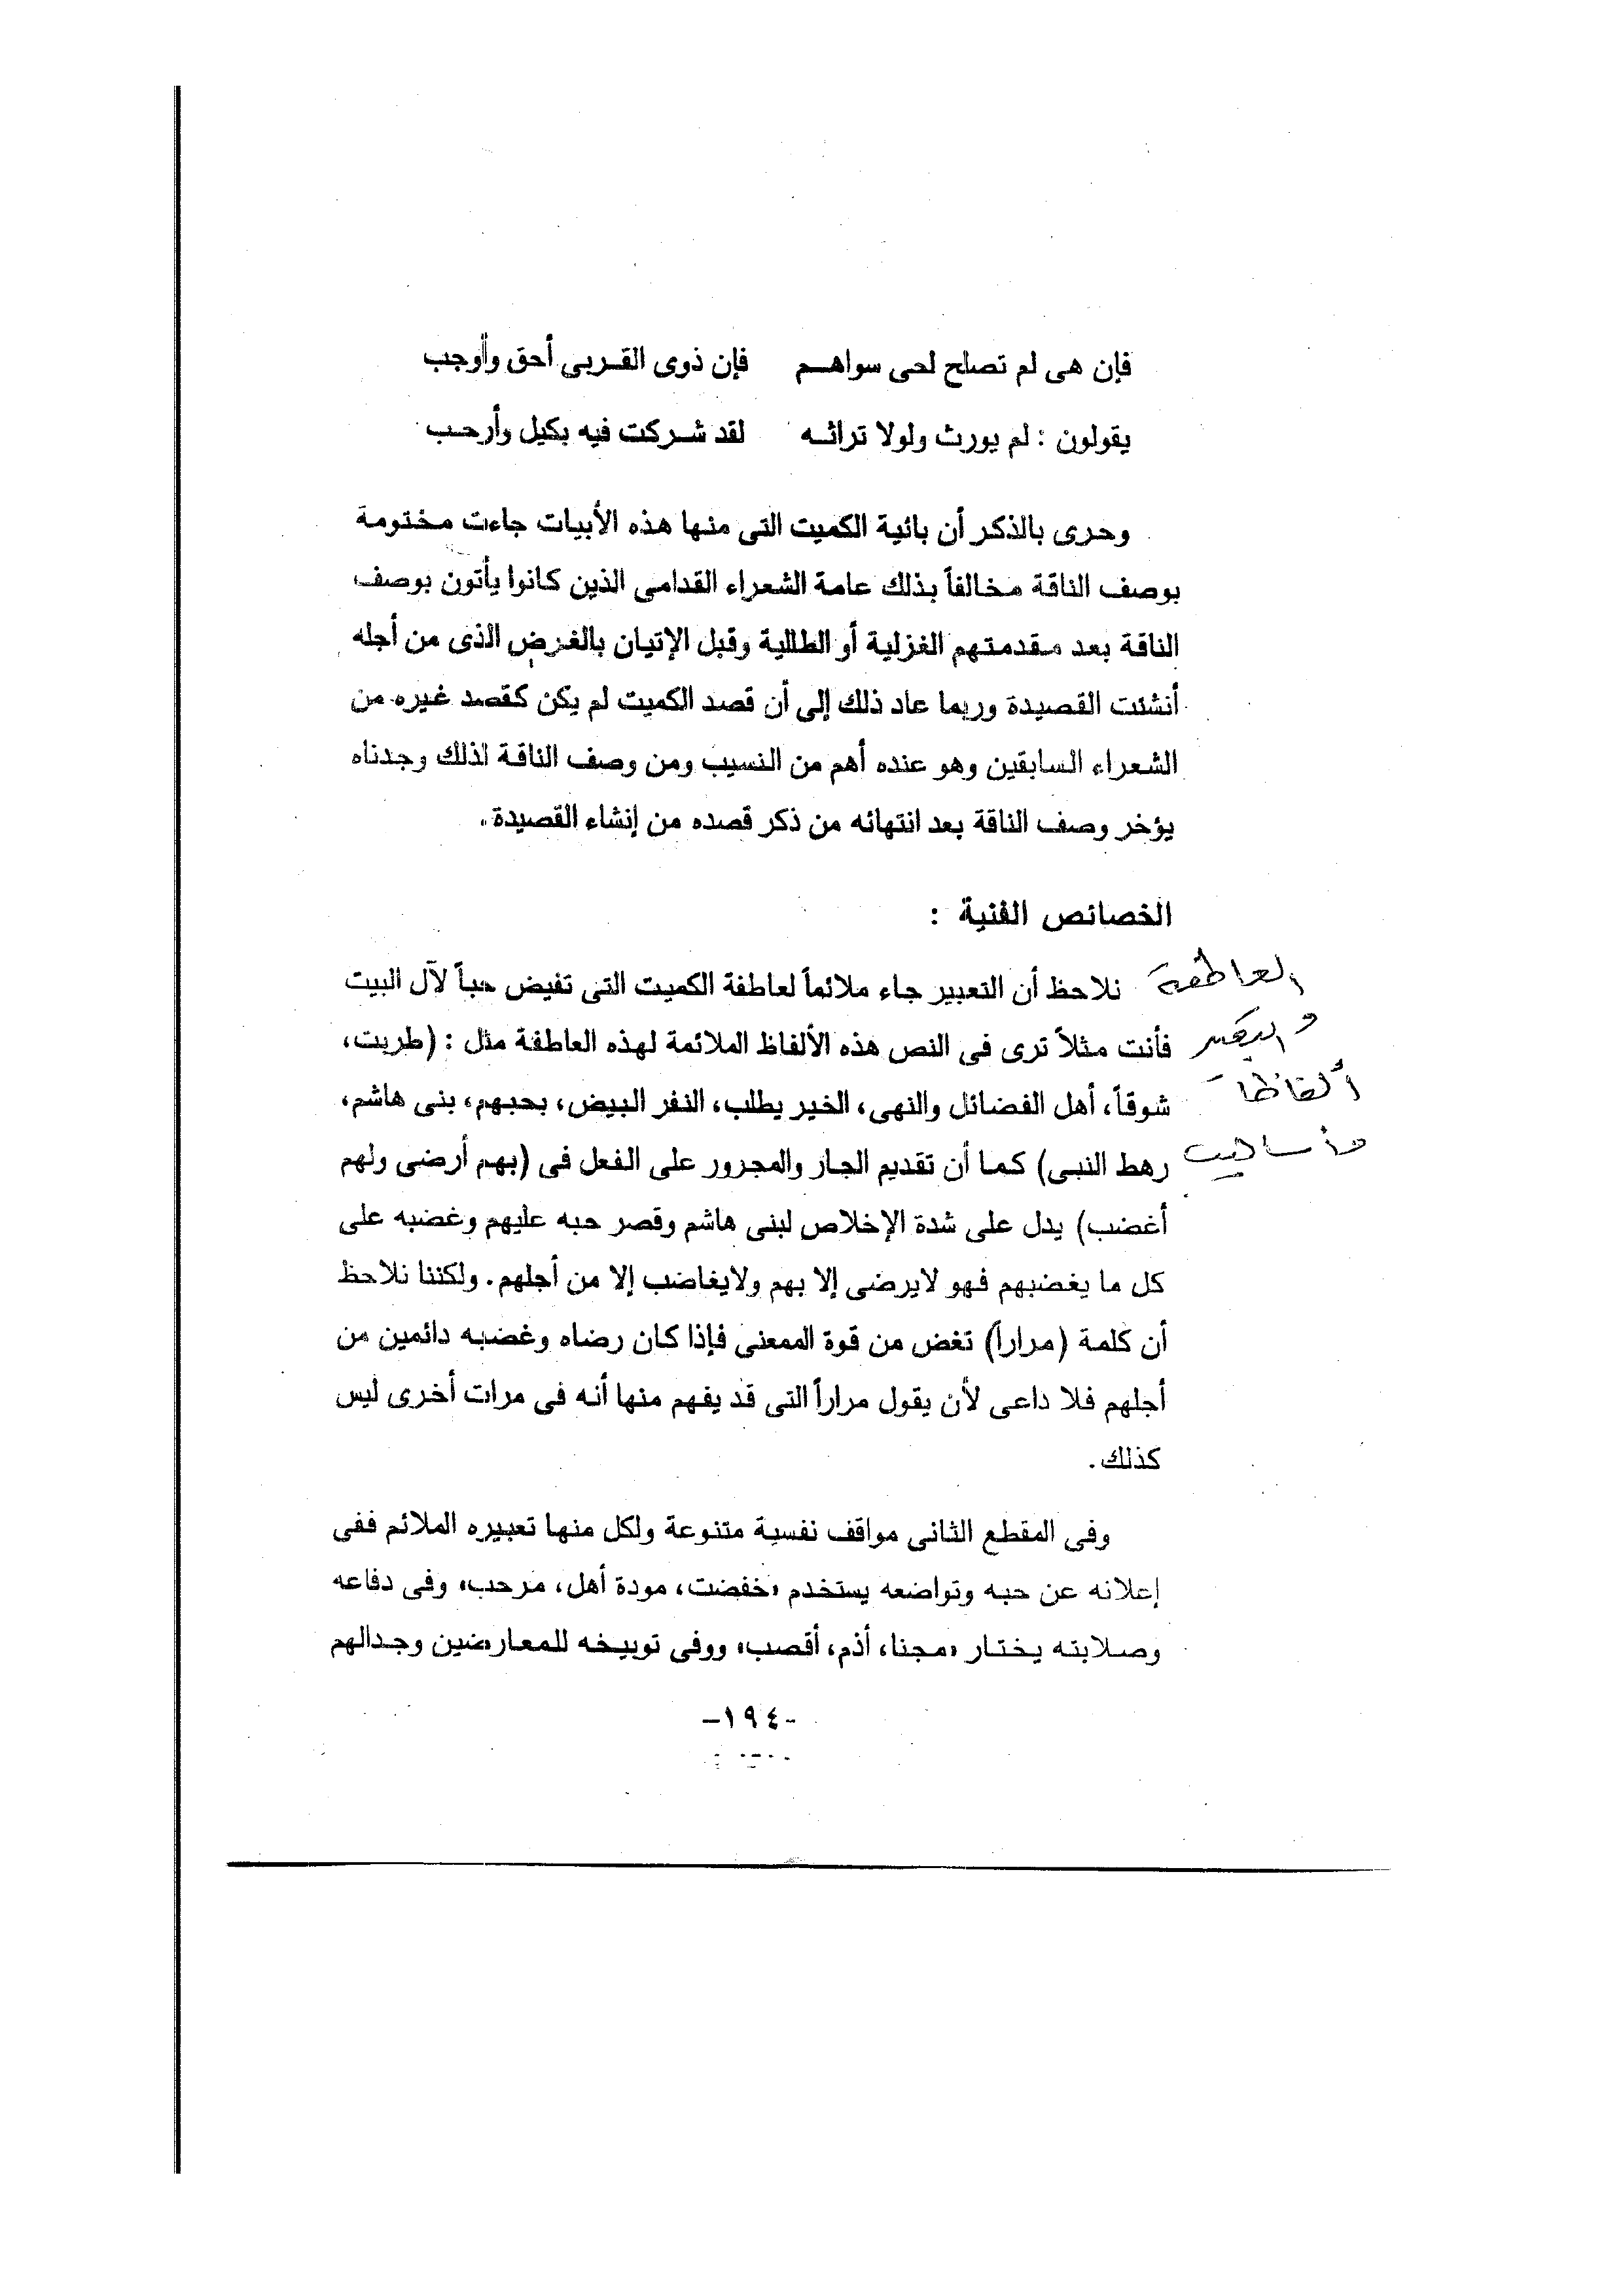 فإن هى لم تصلح لحى سواهـم فإن ذوى القـربى أحق وأوجب
يقولون : لم يورث ولولا تراثـه لقد شـركت فيه بكيل وأرحـب
وحرى بالذكر أن بائية الكميت التى منها هذه الأبيات جاءت مختومة
بوصف الناقة مخالفاً بذلك عامة الشعراء القدامى الذين كانوا يأتون بوصف
الناقة بعد مقدمتهم الغزلية أو الطللية وقبل الإتيان بالغرض الذى من أجله
أنشئت القصيدة وربما عاد ذلك إلى أن قصد الكميت لم يكن كقصد غيره من
الشعراء السابقين وهو عنده أهم من النسيب ومن وصف الناقة لذلك وجدناه
يؤخر وصف الناقة بعد انتهائه من ذكر قصده من إنشاء القصيدة.
الخصائص الفنية :
العاطفة
نلاحظ أن التعبير جاء ملائماً لعاطفة الكميت التى تفيض حباً لآل البيت
والتعبير
فأنت مثلاً ترى فى النص هذه الألفاظ الملائمة لهذه العاطفة مثل : (طربت،
ألفاظا
شوقاً، أهل الفضائل والنهى، الخير يطلب، النفر البيض، بحبهم، بنى هاشم،
وأساليب
رهط النبى) كما أن تقديم الجار والمجرور على الفعل فى (بهم أرضى ولهم
أغضب) يدل على شدة الإخلاص لبنى هاشم وقصر حبه عليهم وغضبه على
كل ما يغضبهم فهو لايرضى إلا بهم ولايغاضب إلا من أجلهم. ولكننا نلاحظ
أن كلمة (مراراً) تغض من قوة الممعنى فإذا كان رضاه وغضبه دائمين من
أجلهم فلا داعى لأن يقول مراراً التى قد يفهم منها أنه فى مرات أخرى ليس
كذلك.
وفى المقطع الثانى مواقف نفسية متنوعة ولكل منها تعبيره الملائم ففى
إعلانه عن حبه وتواضعه يستخدم «خفضت، مودة أهل، مرحب» وفى دفاعه
وصلابته يختار «مجنا، أذم، أقصب» ووفى توبيخه للمعارضين وجدالهم
-١٩٤-